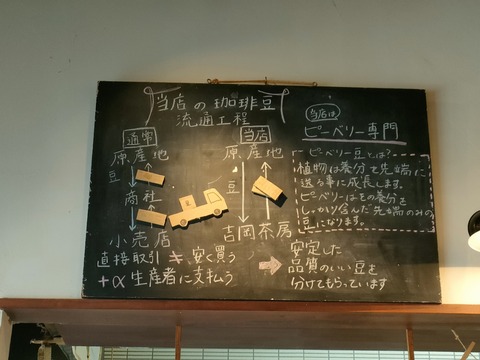 当店の珈琲豆
流通工程
通常
原産地
豆
商社
小売店
当店
原産地
豆
吉岡茶房
直接取引≠安く買う
+α生産者に支払う
当店は
ピーベリー専門
ピーベリー豆とは?
植物は養分で先端に
送る事に成長します。
ピーベリーはその養分を
しっかり含んだ先端のみの
豆になります。
安定した
品質のいい豆を
分けてもらっています